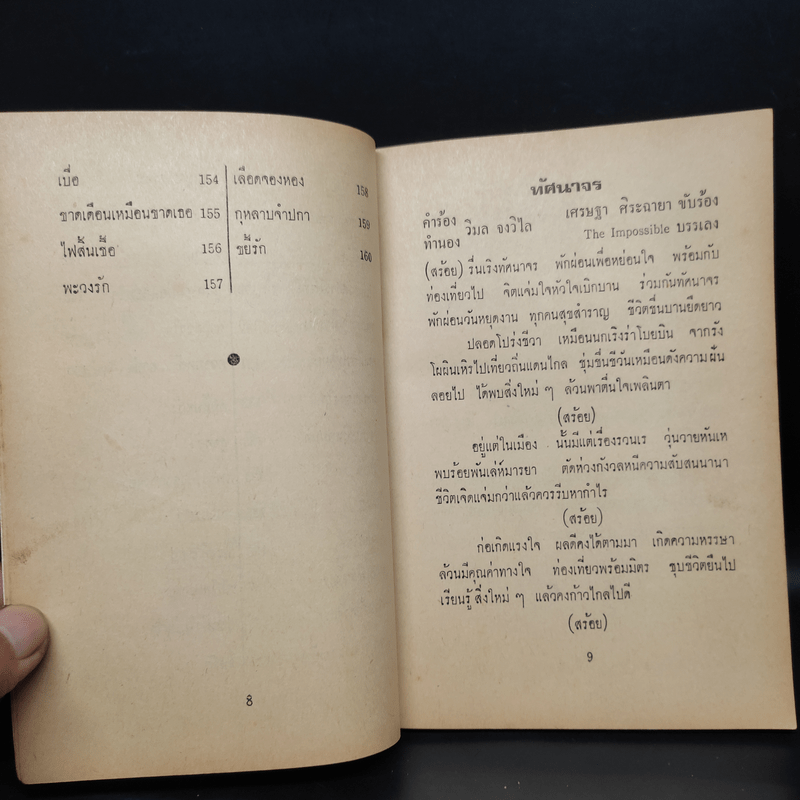 เบื่อ 154
ขาดเดือนเหมือนขาดเธอ 155
ไฟสิ้นเชื้อ 156
พะวงรัก 157
เลือดจองหอง 158
กุหลาบจำปกา 159
ขยี้รัก 160
8
ทัศนาจร
คำร้อง ทำนอง วิมล จงวิไล เศรษฐา ศิระฉายา ขับร้อง
The Impossible บรรเลง
(สร้อย) รื่นเริงทัศนาจร พักผ่อนเพื่อหย่อนใจ พร้อมกับ
ท่องเที่ยวไป จิตแจ่มใจหัวใจเบิกบาน ร่วมกันทัศนาจร
พักผ่อนวันหยุดงาน ทุกคนสุขสำราญ ชีวิตชื่นบานยืดยาว
ปลอดโปร่งชีวา เหมือนนกเริงร่าโบยบิน จากรัง
โผผินเหิรไปเที่ยวถิ่นแดนไกล ชุ่มชื่นชีวันเหมือนดังความฝัน
ลอยไป ได้พบสิ่งใหม่ ๆ ล้วนพาตื่นใจเพลินตา
(สร้อย)
อยู่แต่ในเมือง นั้นมีแต่เรื่องรวนเร วุ่นวายหันเห
พบร้อยพันเล่ห์มารยา ตัดห่วงกังวลหนีความสับสนนานา
ชีวิตเจิดแจ่มกว่าแล้วควรรีบหากำไร
(สร้อย)
ก่อเกิดแรงใจ ผลดีคงได้ตามมา เกิดความหรรษา
ล้วนมีคุณค่าทางใจ ท่องเที่ยวพร้อมมิตร ชุบชีวิตยืนไป
เรียนรู้สิ่งใหม่ ๆ แล้วคงก้าวไกลไปดี
(สร้อย)
9